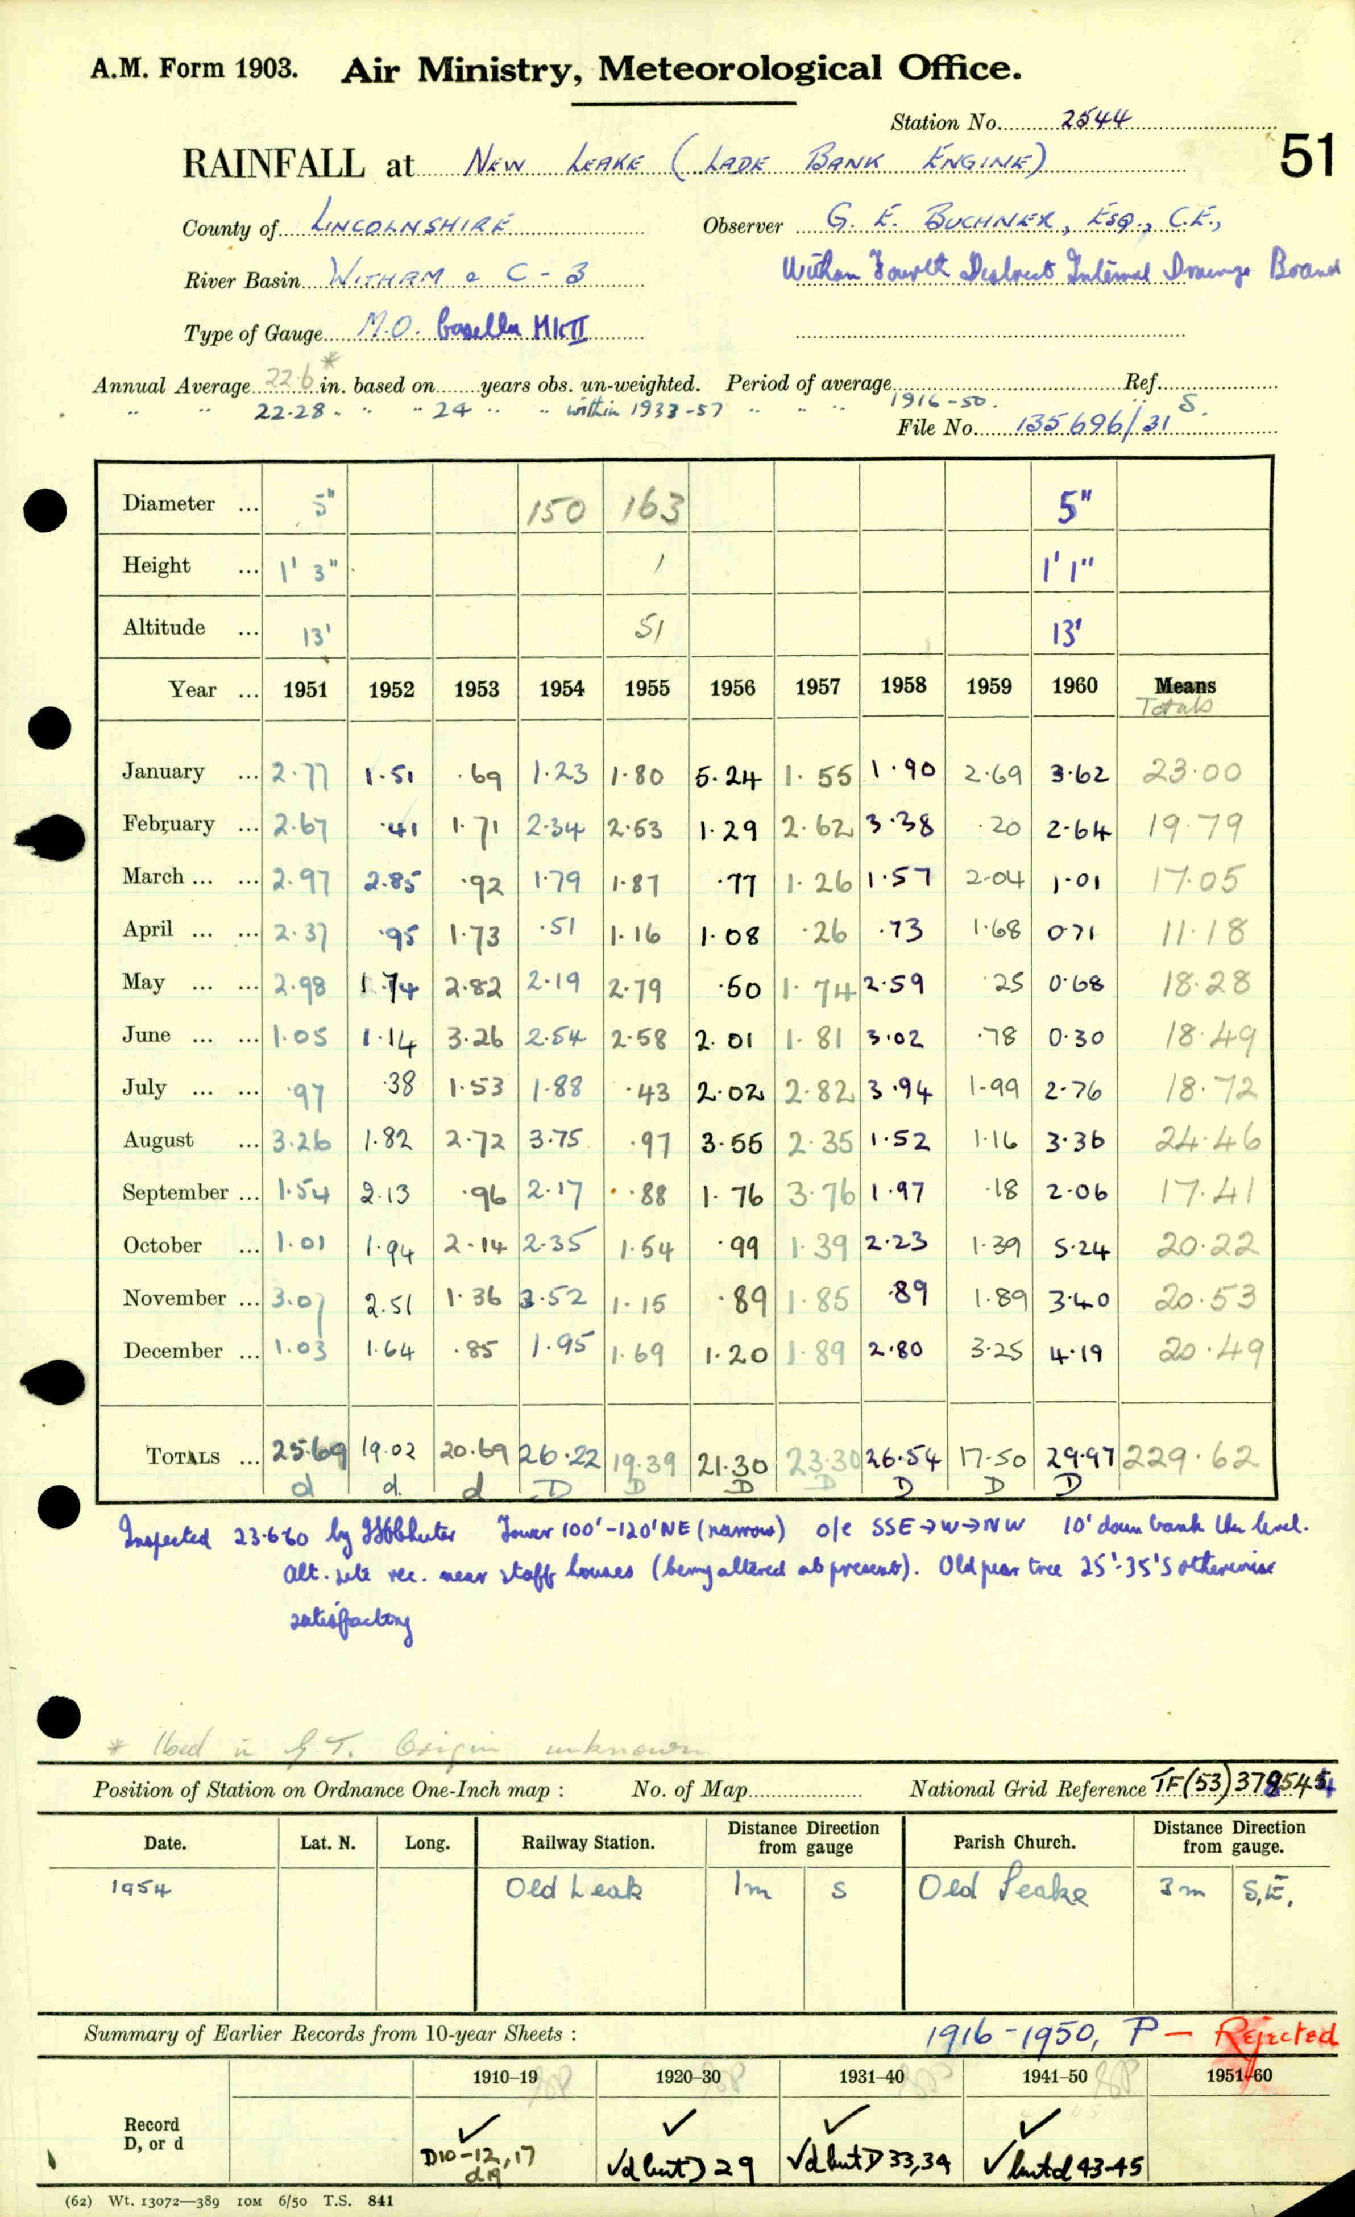 A.M. Form 1903. Air Ministry, Meteorological Office.
Station No. 2544
51
RAINFALL at NEW LEAKE (LADE BANK ENGINE)
County of LINCOLNSHIRE Observer G. E. BUCHNER, ESQ., C.E.,
River Basin WITHAM & C - 3 Witham Fourth District Internal Drainage Board
Type of Gauge M.O. Casella MkII
Annual Average 22.6* in. based on years obs. un-weighted. Period of average Ref.
" " 22.28 " " 24 " " within 1933-57 " " " 1916-50. " S.
File No. 135696/31
Diameter ... 5" 150 163 5"
Height ... 1' 3" 1 1' 1"
Altitude ... 13' 51 13'
Year ... 1951 1952 1953 1954 1955 1956 1957 1958 1959 1960 Means
Totals
January ... 2.77 1.51 .69 1.23 1.80 5.24 1.55 1.90 2.69 3.62 23.00
February ... 2.67 .41 1.71 2.34 2.53 1.29 2.62 3.38 .20 2.64 19.79
March ... ... 2.97 2.85 .92 1.79 1.87 .77 1.26 1.57 2.04 1.01 17.05
April ... ... 2.37 .95 1.73 .51 1.16 1.08 .26 .73 1.68 0.71 11.18
May ... ... 2.98 1.74 2.82 2.19 2.79 .50 1.74 2.59 .25 0.68 18.28
June ... ... 1.05 1.14 3.26 2.54 2.58 2.01 1.81 3.02 .78 0.30 18.49
July ... ... .97 .38 1.53 1.88 .43 2.02 2.82 3.94 1.99 2.76 18.72
August ... 3.26 1.82 2.72 3.75 .97 3.55 2.35 1.52 1.16 3.36 24.46
September ... 1.54 2.13 .96 2.17 .88 1.76 3.76 1.97 .18 2.06 17.41
October ... 1.01 1.94 2.14 2.35 1.54 .99 1.39 2.23 1.39 5.24 20.22
November ... 3.07 2.51 1.36 3.52 1.15 .89 1.85 .89 1.89 3.40 20.53
December ... 1.03 1.64 .85 1.95 1.69 1.20 1.89 2.80 3.25 4.19 20.49
TOTALS ... 25.69 19.02 20.69 26.22 19.39 21.30 23.30 26.54 17.50 29.97 229.62
d d. d D D D D D D D
Inspected 23.6.60 by Tower 100'-120' NE (narrow) o/e SSE→W→NW 10' down bank Un level.
Alt. site rec. near staff houses (being altered at present). Old pear tree 25'-35' S otherwise
satisfactory
* Used in G.T. Origin unknown
Position of Station on Ordnance One-Inch map : No. of Map National Grid Reference TF(53)378544
Date. Lat. N. Long. Railway Station. Distance from Direction gauge Parish Church. Distance from Direction gauge.
1954 Old Leak 1m S Old Leake 3m S.E.
Summary of Earlier Records from 10-year Sheets : 1916-1950, P — Rejected
1910–19 1920–30 1931–40 1941–50 1951–60
Record ✓ ✓ ✓ ✓
D, or d D10-12,17 √d but D 29 √d but D 33,34 √ but d 43-45
d19
(62) Wt. 13072—389 10M 6/50 T.S. 841